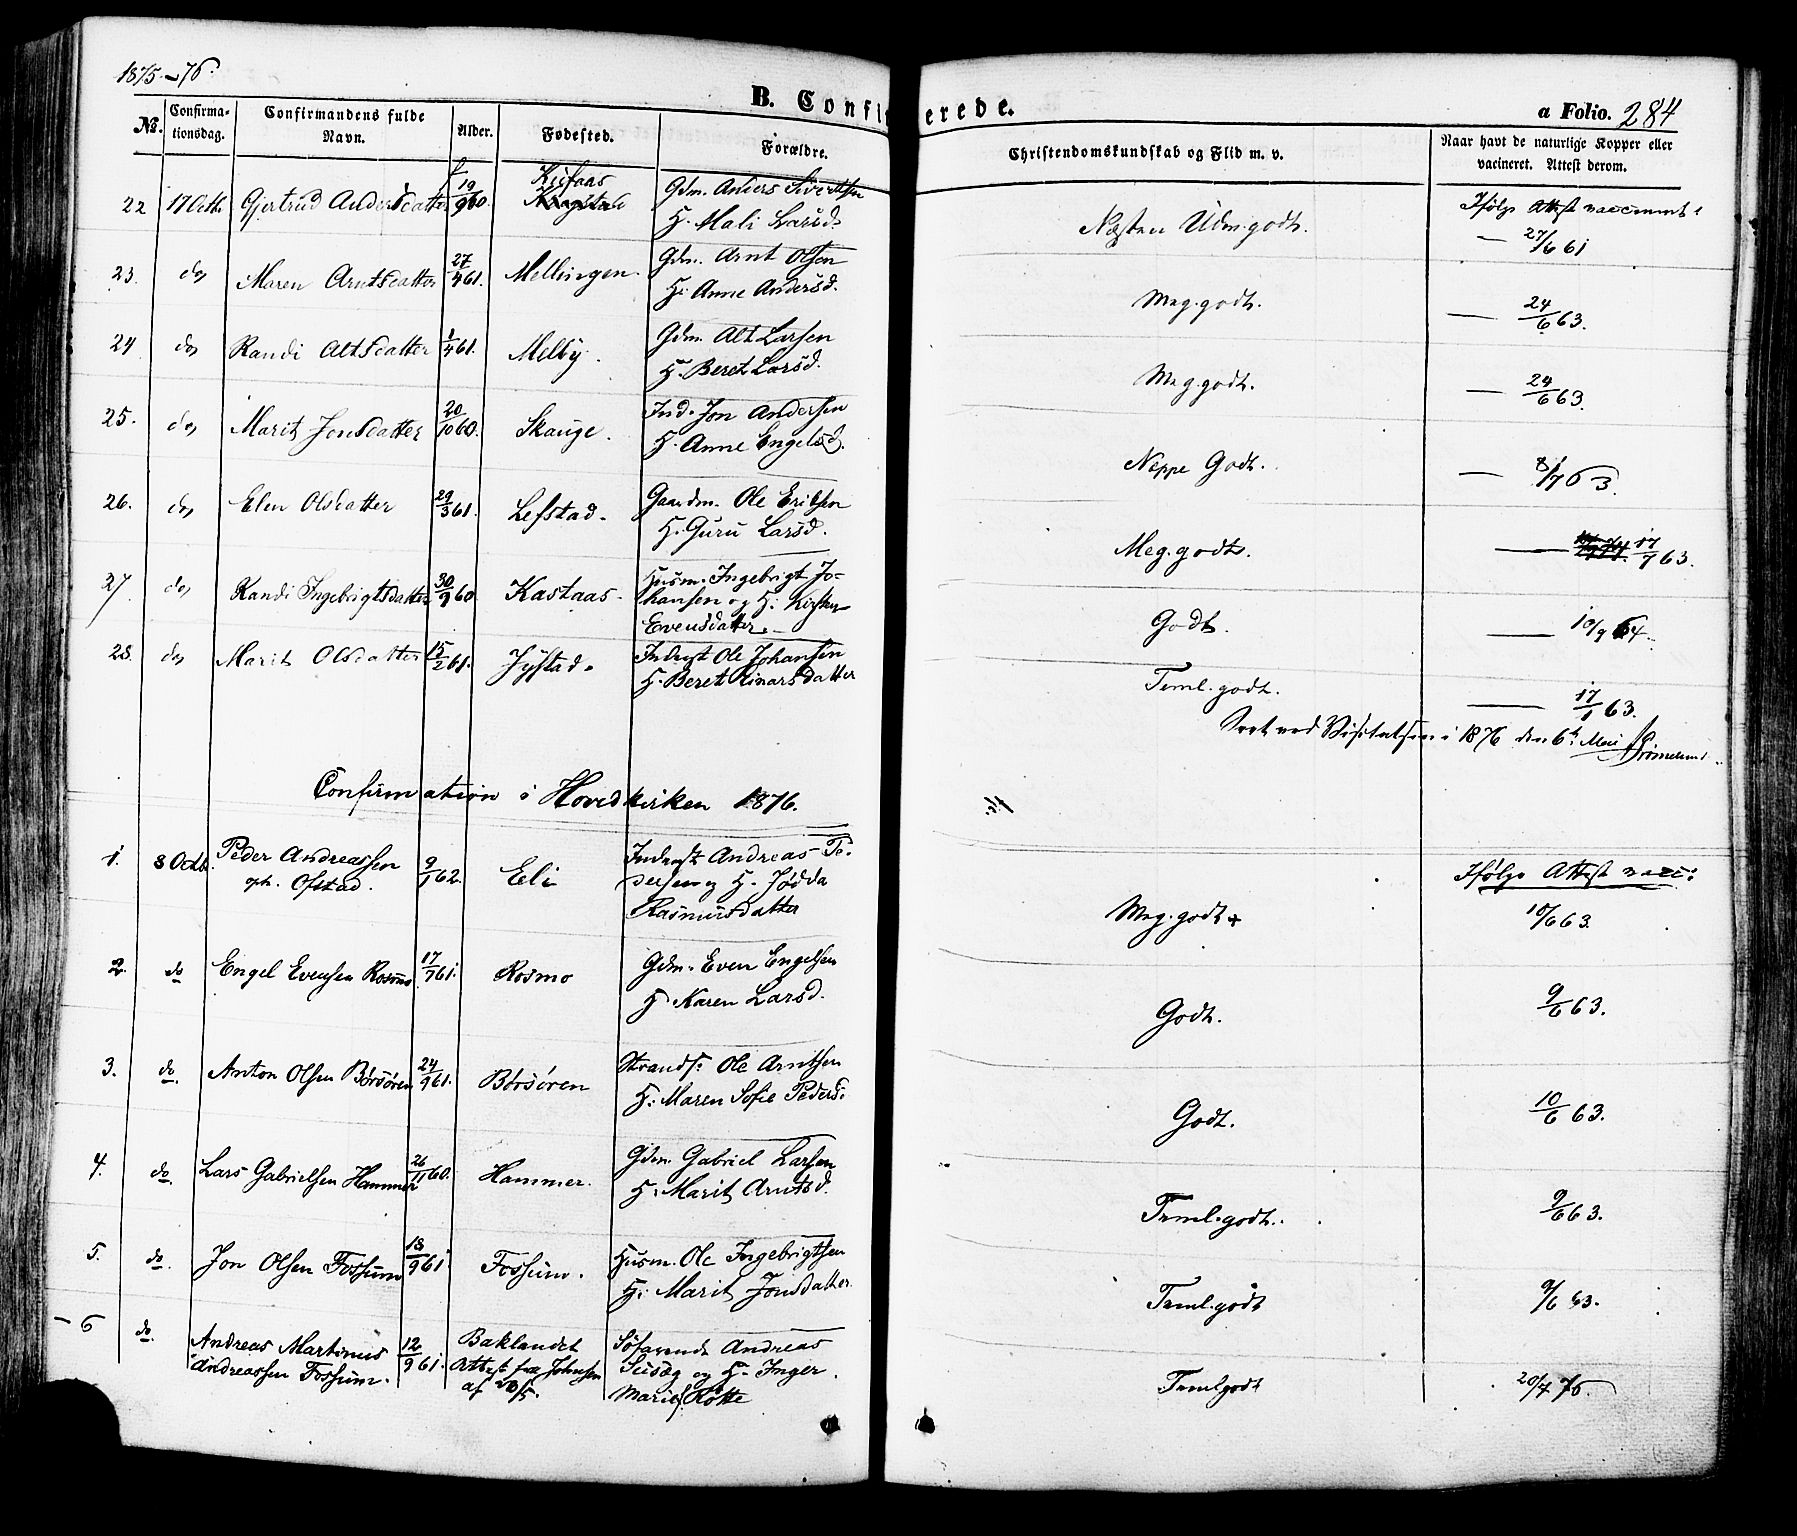 1875-76.
B. Confirmerede.
a Folio. 284
No. Confirmationsdag. Confirmandens fulde Navn. Alder. Fødested. Forældre. Christendomskundskab og Flid m. v. Naar havt de naturlige Kopper eller vacineret. Attest derom.
22 17 Octb. Gjertrud Andersdatter 19/9 60. Gdm. Anders Sivertsen
H. Mali Larsd. Næsten Udm. godt. Ifølge Attest vaccineret
— 27/6 61
23. do Maren Arntsdatter 27/4 61. Mellingen. Gdm. Arnt Olsen
H. Anne Andersd. Meg. godt. — 24/6 63.
24 do Randi Altsdatter 1/4 61. Melby. Gdm. Alt Larsen
H. Beret Larsd. Meg. godt. — 24/6 63.
25. do Marit Jonsdatter 20/10 60. Skauge. Ind. Jon Andersen
H. Anne Engelsd. Neppe Godt. — 8/7 63.
26. do Elen Olsdatter 29/3 61. Lefstad. Gaardm. Ole Eriksen
H. Guru Larsd. Meg. godt. — 17/7 63.
27. do Randi Ingebrigtsdatter 30/9 60 Kastaas. Husm. Ingebrigt Jo-
hansen og H. Kirsten
Evensdatter. Godt. — 10/9 64.
28. do Marit Olsdatter 15/2 61. Jystad. Inderst Ole Johansen
H. Beret Einarsdatter Teml. godt. — 17/1 63.
Seet ved Visitatsen i 1876 den 6t Mai
Confirmation i Hovedkirken 1876.
1. 8 Octb. Peder Andreassen
oph. Ofstad. 9/1 62. Eli Inderst Andreas Pe-
dersen og H. Jødda
Rasmusdatter Meg. godt + Ifølge Attest vacc:
10/6 63.
2. do Engel Evensen Rosmo 17/7 61. Rosmo Gdm. Even Engelsen
H. Karen Larsd. Godt. 9/6 63.
3. do. Anton Olsen Börsören 24/9 61. Börsören Strands. Ole Arntsen
H. Maren Sofie Pedersd. Godt. 10/6 63.
4. do. Lars Gabrielsen Hammer 26/11 60. Hammer. Gdm. Gabriel Larsen
H. Marit Arntsd. Teml. godt. 9/6 63.
5. do. Jon Olsen Fossum 18/9 61. Fossum. Husm. Ole Ingebrigtsen
H. Marit Jonsdatter. Teml. godt 9/6 63.
6 do. Andreas Martinus
Andreassen Fossum. 12/9 61. Baklandet
Attest fra Johnsen
af 20/5. Söfarende Andreas
Susæg og H. Inger
Marie Rotte Teml godt 20/7 75.